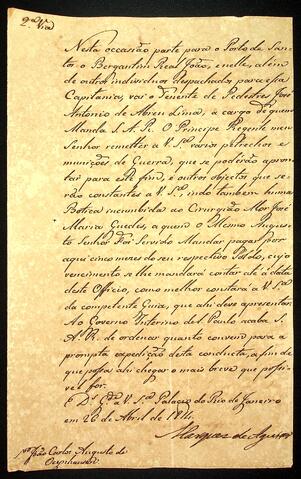 2ª Via
Nesta occasião parte para o Porto de San-
tos o Bergantim Real João, e nelle, além
de outros individuos despachados para essa
Capitania, vai o Tenente de Pedestres José
Antonio de Abreu Lima, a cargo de quem
Manda S. A. R. O Principe Regente meu
Senhor remetter a V. Sª varios petrechos e
munições de Guerra, que se poderão apron-
tar para este fim, e outros objectos que se-
rão constantes a V. Sª, indo tambem huma
Botica incumbida ao Cirurgião Mor José
Maria Guedes, a quem o Mesmo Augus-
to Senhor Foi Servido Mandar pagar por
aqui cinco mezes do seu respectivo Soldo, cujo
vencimento se lhe mandará contar da data
deste Officio, como melhor constará a V. Sª
da competente Guia, que ahi deve apresentar.
Ao Governo Interino de S. Paulo acaba S.
A. R. de ordenar quanto convem para a
prompta expedição desta conducta, a fim de
que possa ahi chegar o mais breve que possi-
vel for.
Ds. Gde. a V. Sª Palacio do Rio de Janeiro
em 26 de Abril de 1814.
Marquez de Aguiar
João Carlos Augusto de
Oeynhausen